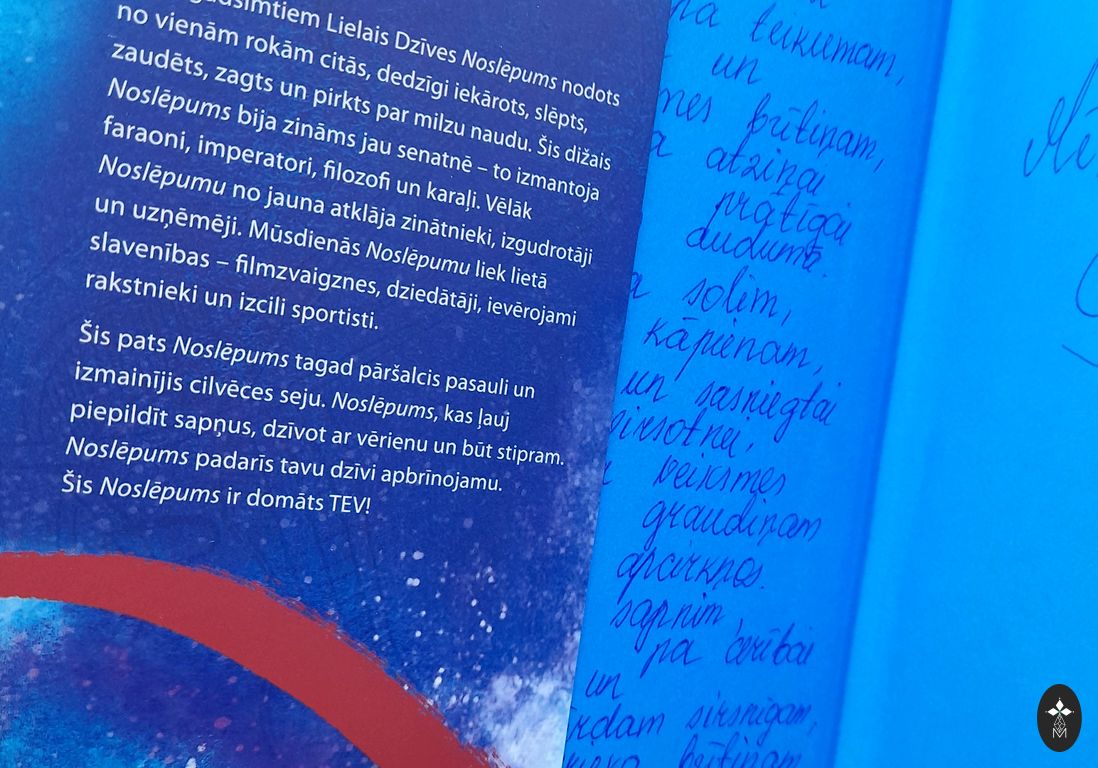 Lielais Dzīves Noslēpums nodots
no vienām rokām citās, dedzīgi iekārots, slēpts,
zaudēts, zagts un pirkts par milzu naudu. Šis dižais
Noslēpums bija zināms jau senatnē – to izmantoja
faraoni, imperatori, filozofi un karaļi. Vēlāk
Noslēpumu no jauna atklāja zinātnieki, izgudrotāji
un uzņēmēji. Mūsdienās Noslēpumu liek lietā
slavenības – filmzvaigznes, dziedātāji, ievērojami
rakstnieki un izcili sportisti.
Šis pats Noslēpums tagad pāršalcis pasauli un
izmainījis cilvēces seju. Noslēpums, kas ļauj
piepildīt sapņus, dzīvot ar vērienu un būt stipram.
Noslēpums padarīs tavu dzīvi apbrīnojamu.
Šis Noslēpums ir domāts TEV!
teikumam,
un
brītiņam,
atziņai
prātīgai
solim,
kāpienam,
un sasniegtai
veiksmes
graudiņam
apcirkņos.
sapnim,
pa cerībai
un
sirsnīgam,
brītiņam
M